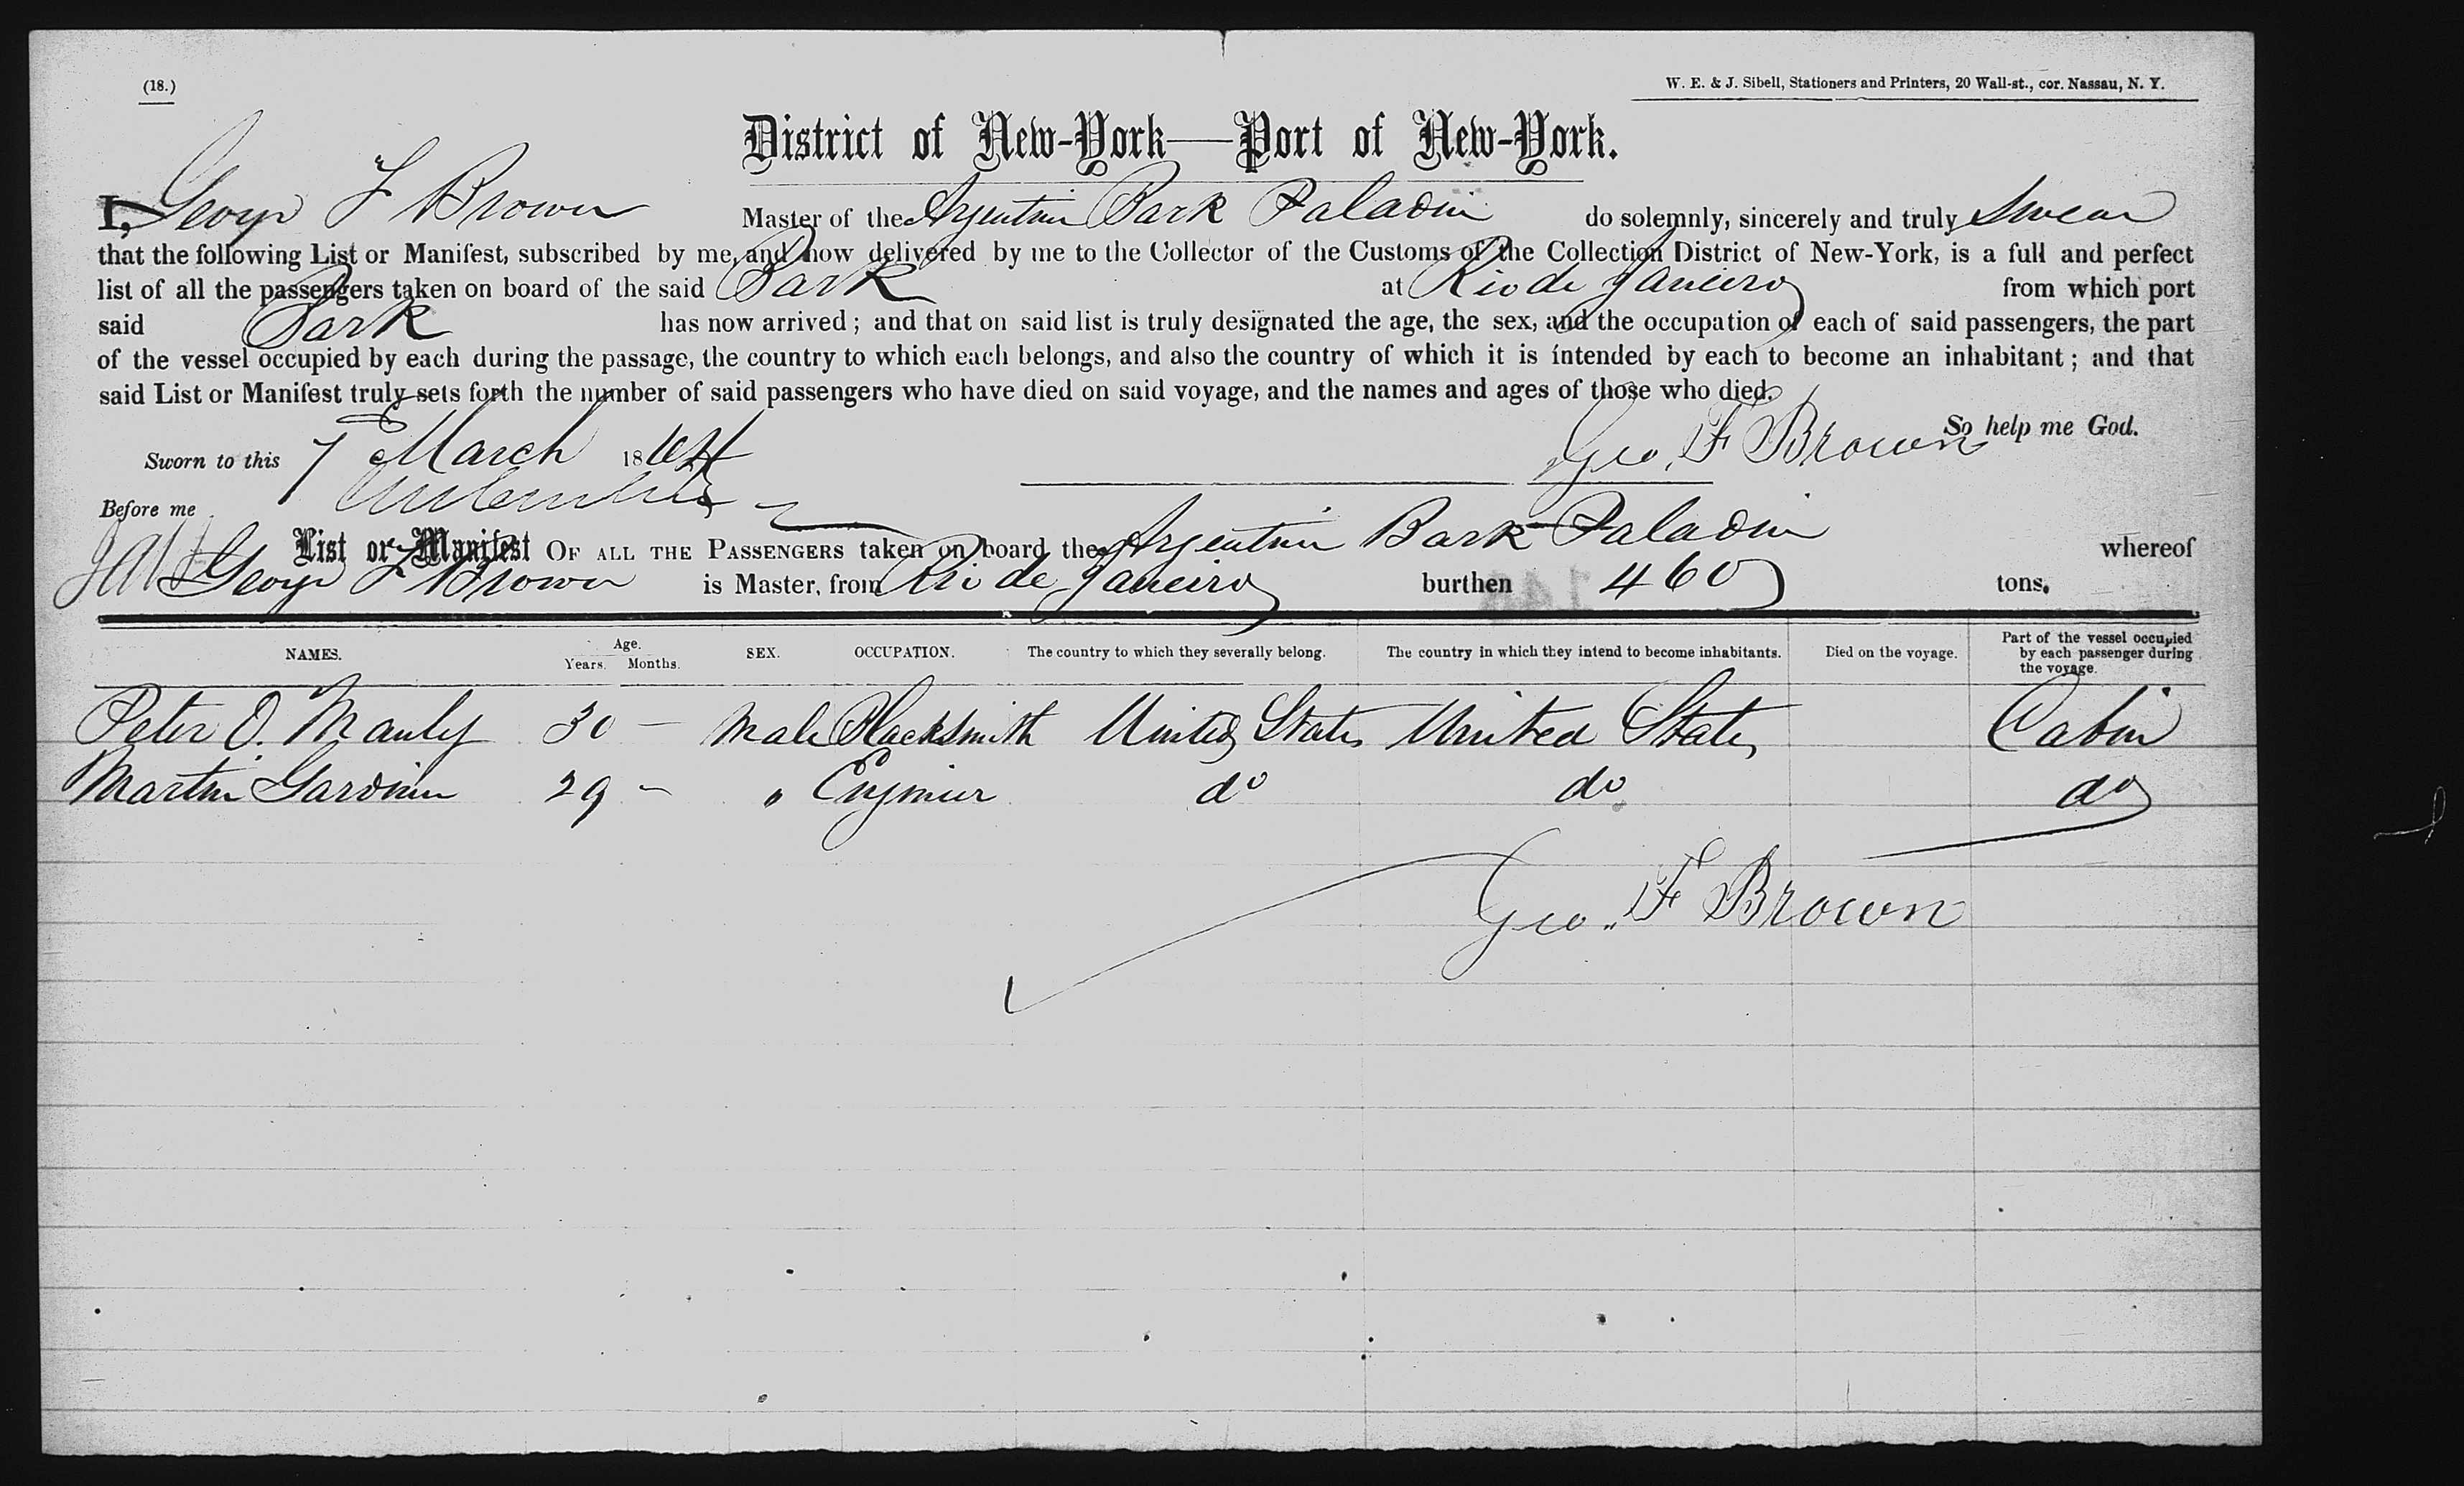 (18.)
W. E. & J. Sibell, Stationers and Printers, 20 Wall-st., cor. Nassau, N. Y.
District of New-York—Port of New-York.
I, George F Brown Master of the Argentine Bark Paladin do solemnly, sincerely and truly Swear
that the following List or Manifest, subscribed by me, and now delivered by me to the Collector of the Customs of the Collection District of New-York, is a full and perfect
list of all the passengers taken on board of the said Bark at Rio de Janeiro from which port
said Bark has now arrived; and that on said list is truly designated the age, the sex, and the occupation of each of said passengers, the part
of the vessel occupied by each during the passage, the country to which each belongs, and also the country of which it is intended by each to become an inhabitant; and that
said List or Manifest truly sets forth the number of said passengers who have died on said voyage, and the names and ages of those who died.
So help me God.
Sworn to this 7 March 1864 Geo. F Brown
Before me
List or Manifest OF ALL THE PASSENGERS taken on board the Argentine Bark Paladin whereof
George F Brown is Master, from Rio de Janeiro burthen 460 tons.
NAMES. Age. Years. Months. SEX. OCCUPATION. The country to which they severally belong. The country in which they intend to become inhabitants. Died on the voyage. Part of the vessel occupied by each passenger during the voyage.
Peter O. Manly 30 — Male Blacksmith United States United States Cabin
Martin Gardiner 29 - " Engineer do do do
Geo. F Brown